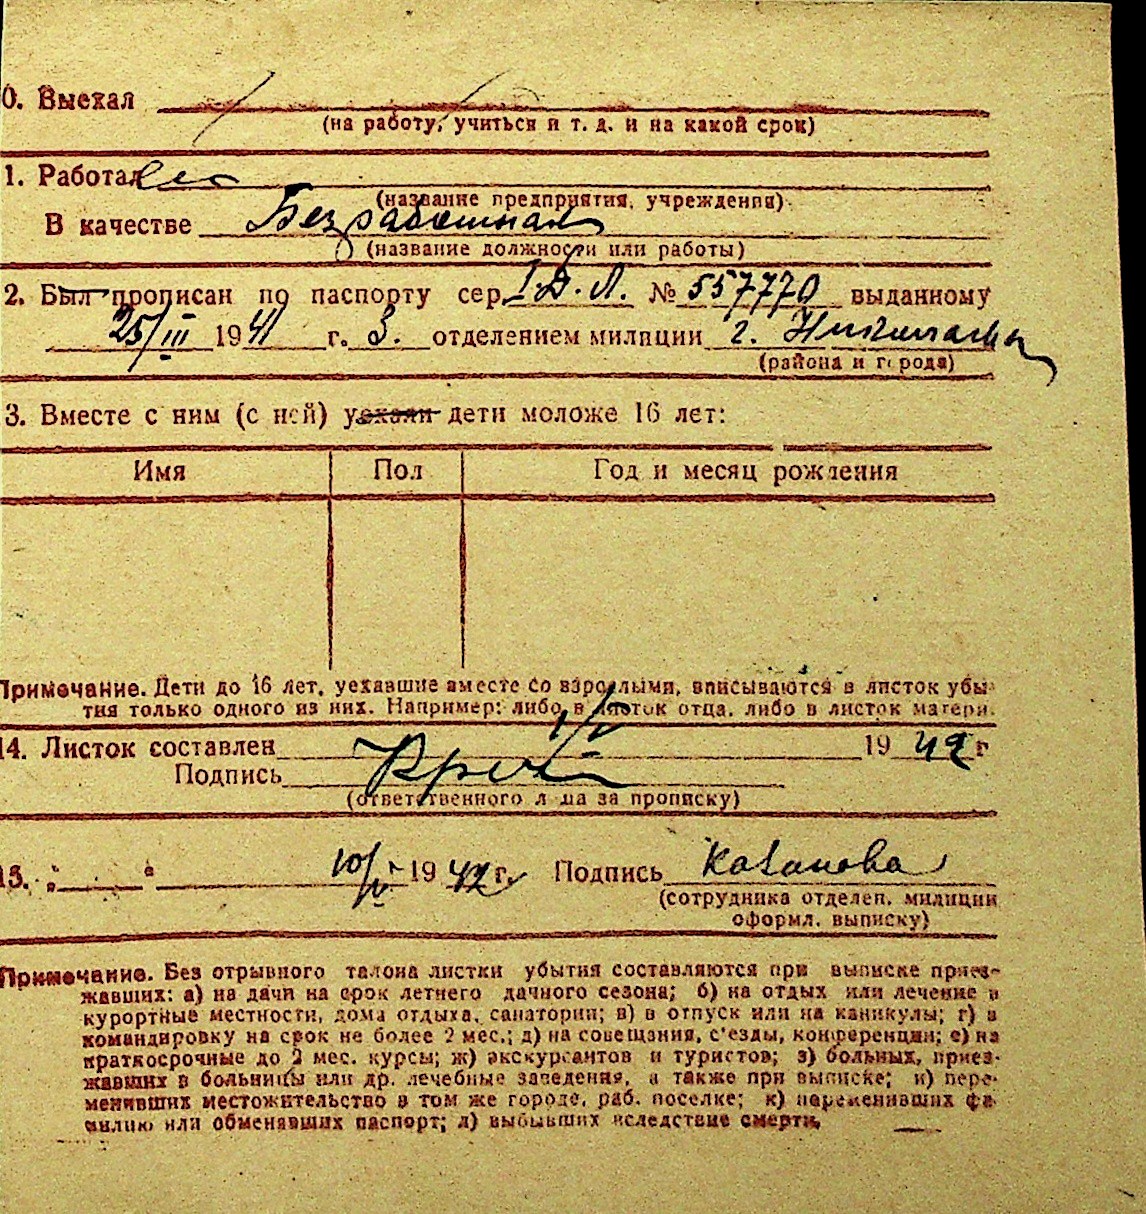 0. Выехал
(на работу, учиться и т. д. и на какой срок)
1. Работал
(название предприятия, учреждения)
В качестве Безработная
(название должности или работы)
2. Был прописан по паспорту сер. № 557770 выданному
25/III 1941 г. 3. отделением милиции г.
(района и города)
3. Вместе с ним (с ней) уехали дети моложе 16 лет:
Имя Пол Год и месяц рождения
Примечание. Дети до 16 лет, уехавшие вместе со взрослыми, вписываются в листок убы-
тия только одного из них. Например: либо в листок отца, либо в листок матери.
14. Листок составлен 1/V 1942 г
Подпись
(ответственного лица за прописку)
15. „ “ 10/V 1942 г. Подпись Казакова
(сотрудника отделен. милиции
оформл. выписку)
Примечание. Без отрывного талона листки убытия составляются при выписке приез-
жавших: а) на дачи на срок летнего дачного сезона; б) на отдых или лечение в
курортные местности, дома отдыха, санатории; в) в отпуск или на каникулы; г) в
командировку на срок не более 2 мес.; д) на совещания, с'езды, конференции; е) на
краткосрочные до 2 мес. курсы; ж) экскурсантов и туристов; з) больных, приез-
жавших в больницы или др. лечебные заведения, а также при выписке; и) пере-
менивших местожительство в том же городе, раб. поселке; к) переменивших фа-
милию или обменявших паспорт; л) выбывших вследствие смерти.